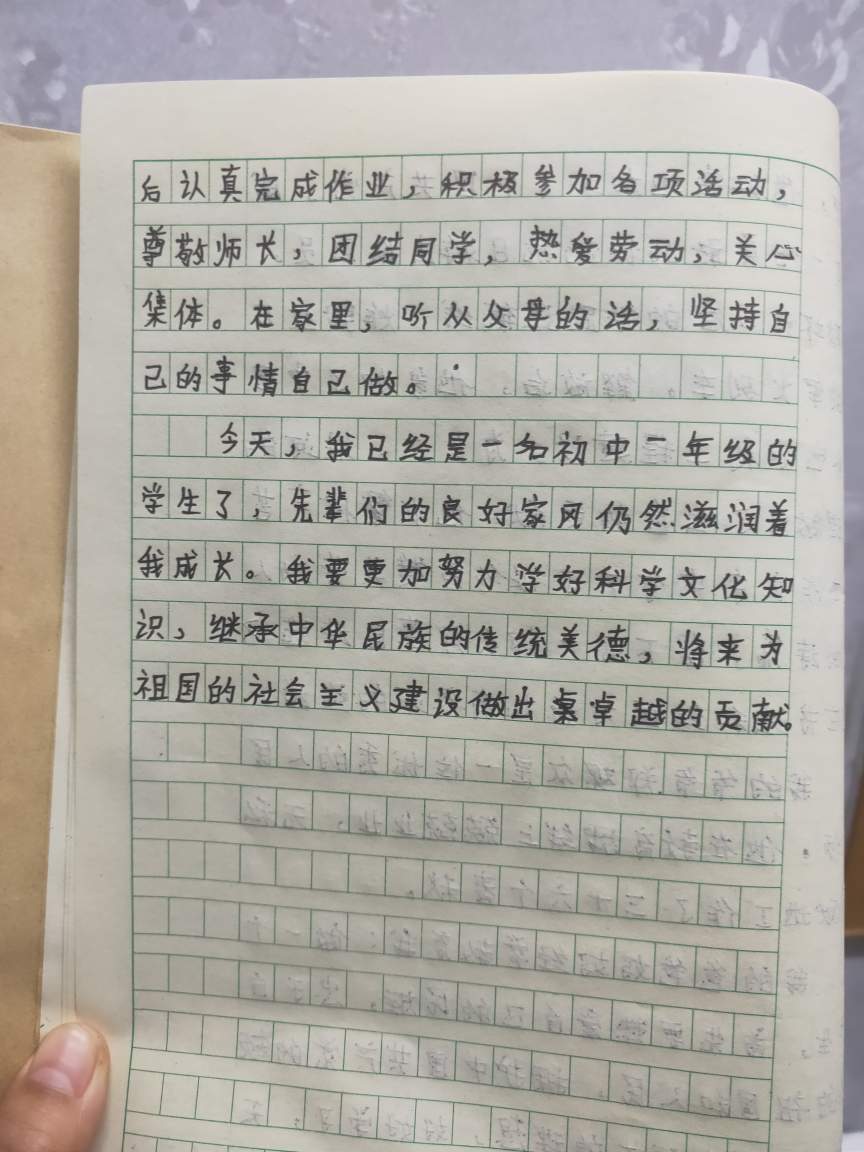 后认真完成作业，积极参加各项活动，
尊敬师长，团结同学，热爱劳动，关心
集体。在家里，听从父母的话，坚持自
己的事情自己做。
今天，我已经是一名初中二年级的
学生了，先辈们的良好家风仍然滋润着
我成长。我要更加努力学好科学文化知
识，继承中华民族的传统美德，将来为
祖国的社会主义建设做出桌卓越的贡献。